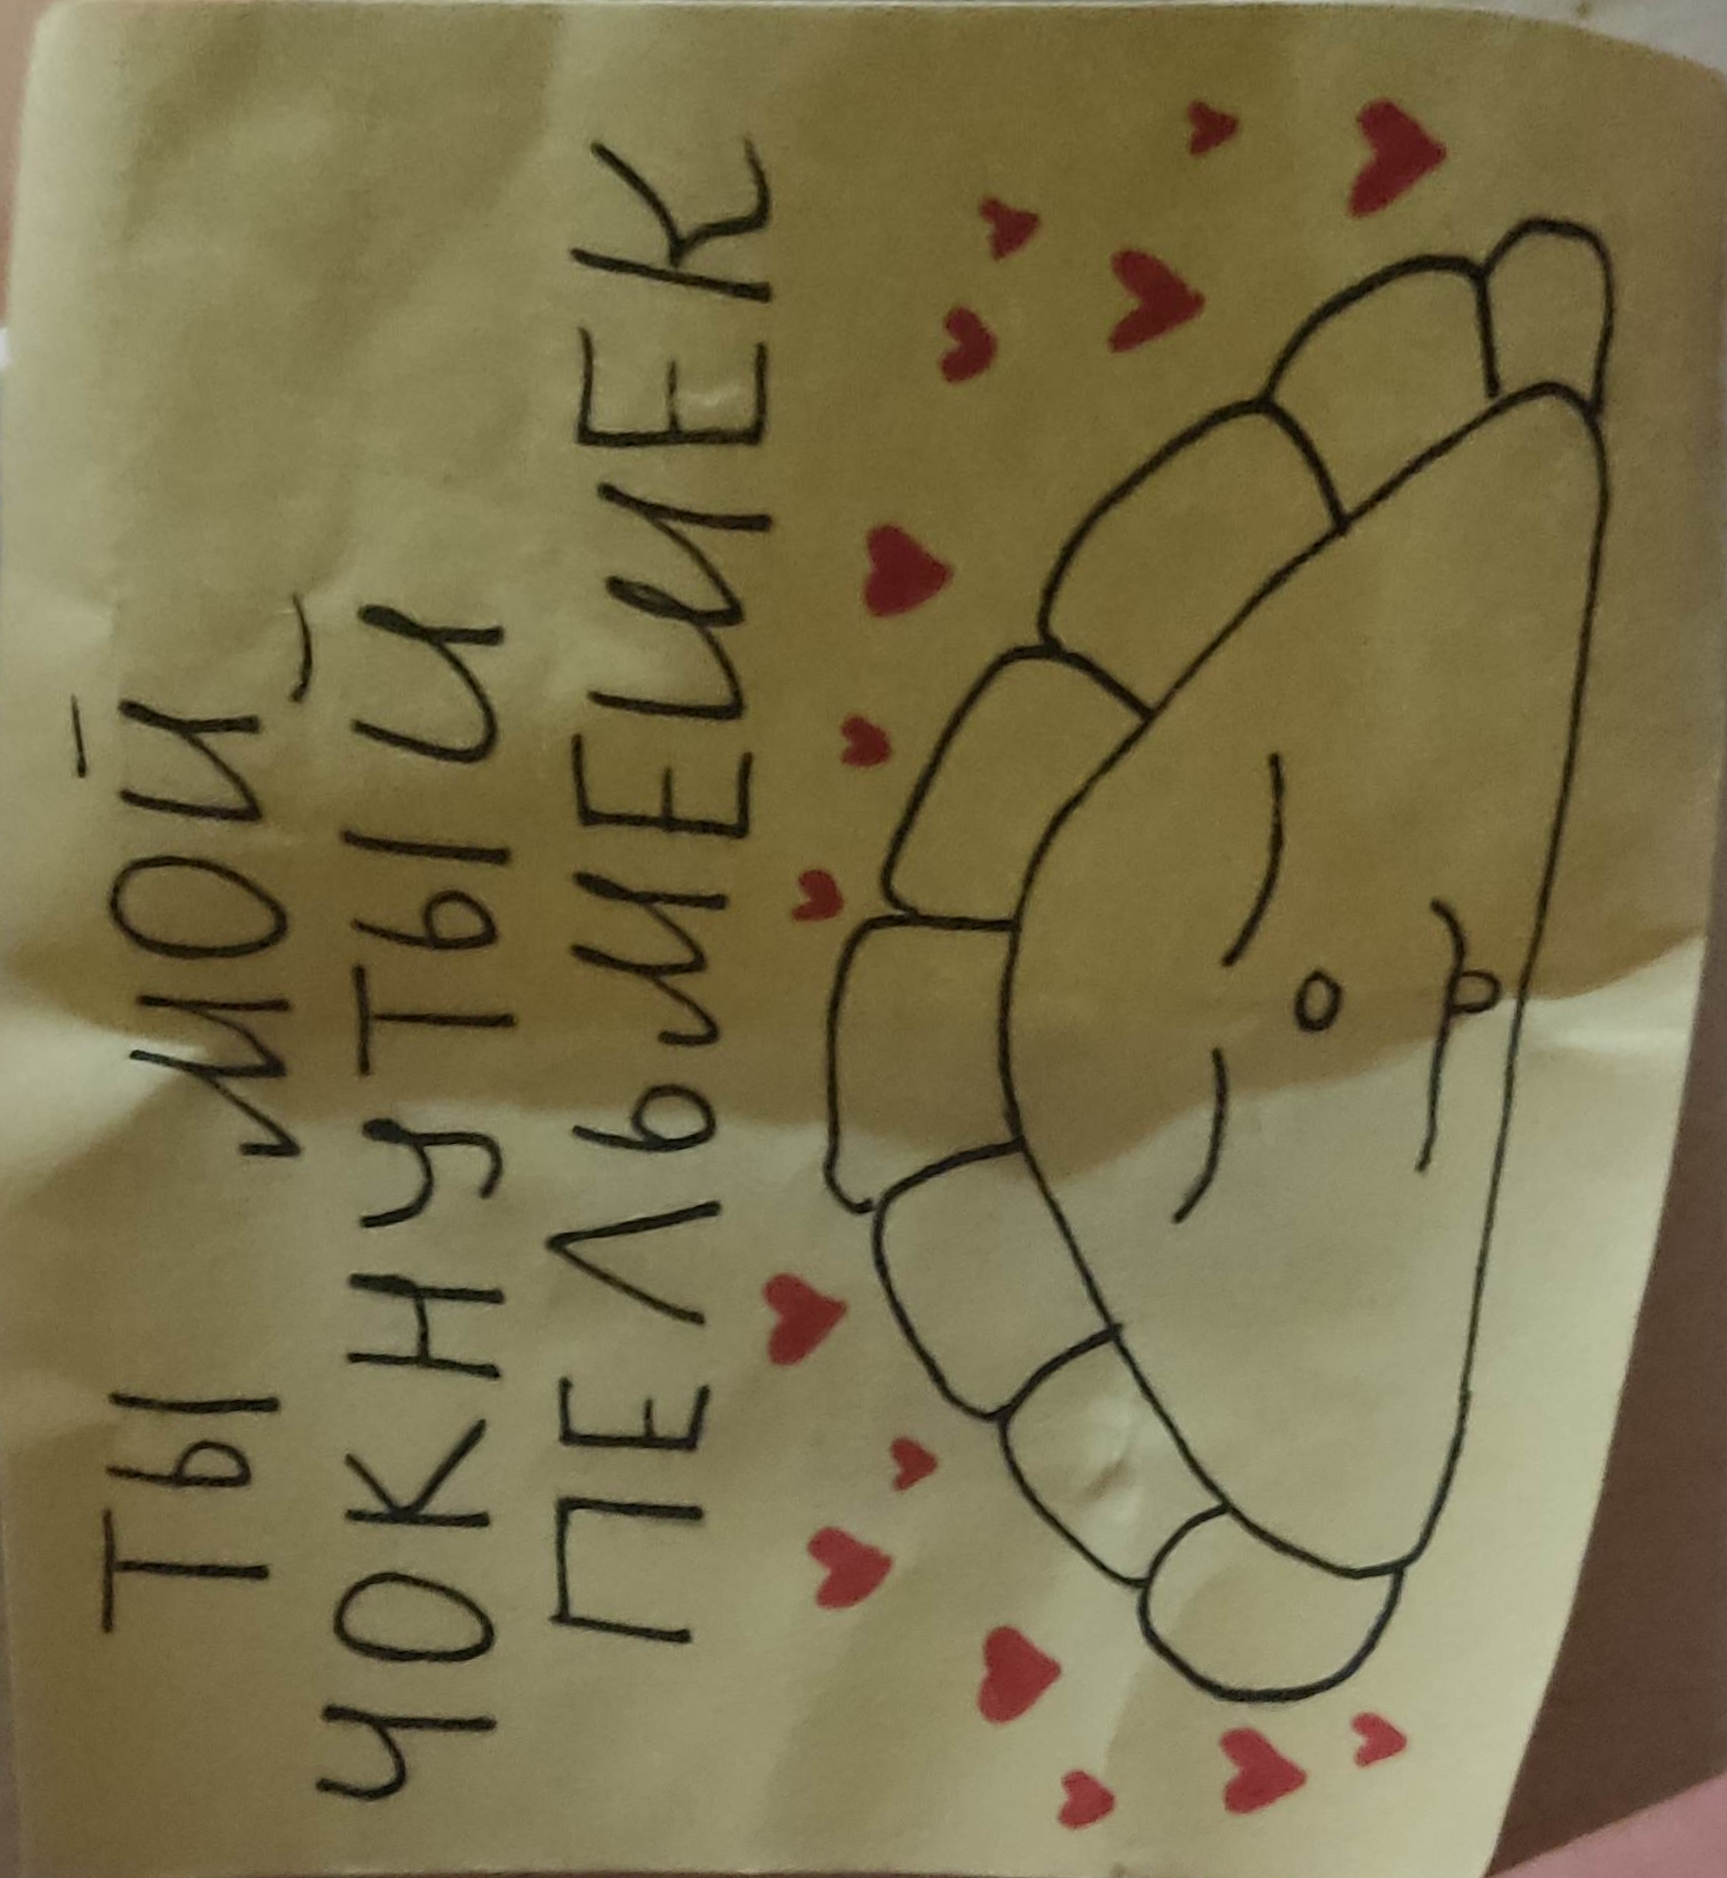 ТЫ МОЙ
ЧОКНУТЫЙ
ПЕЛЬМЕШЕК